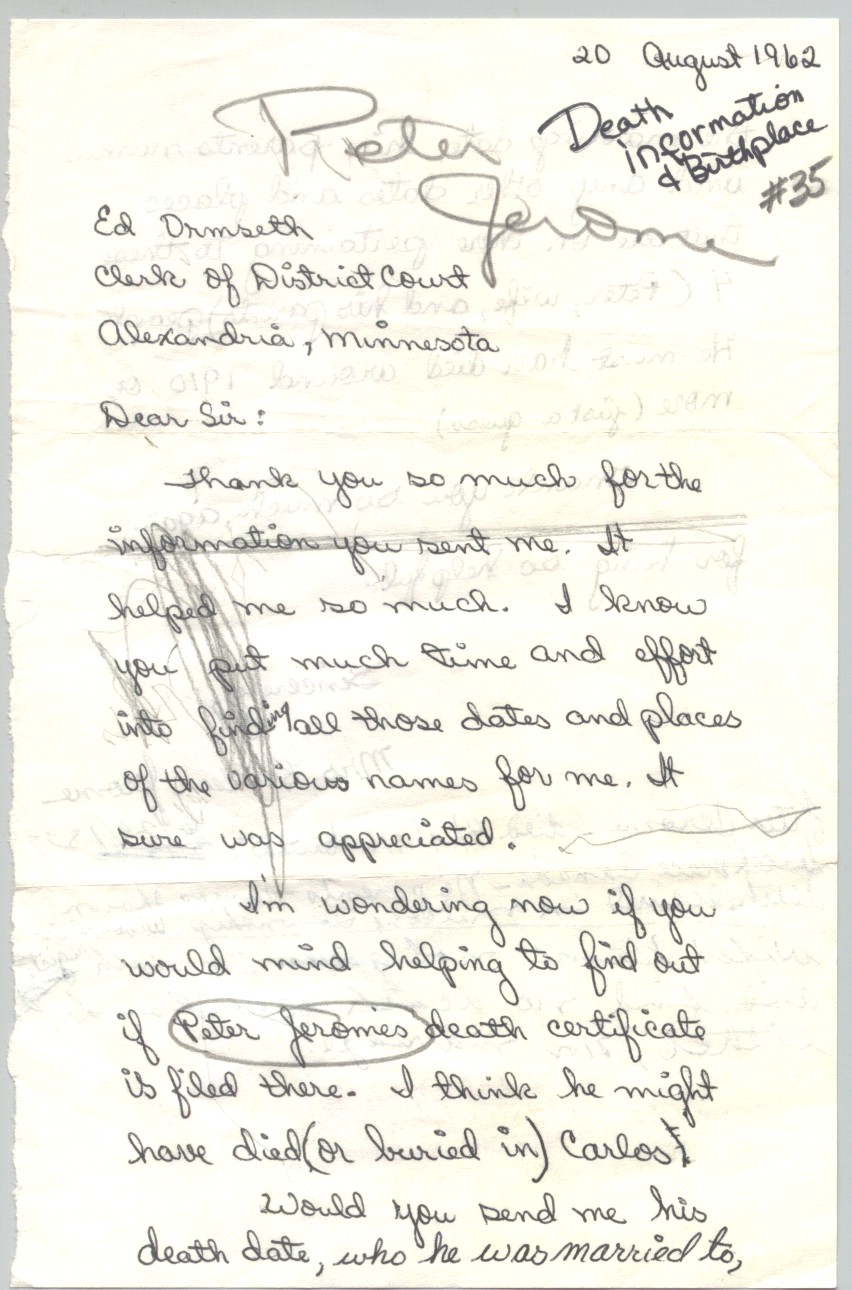 20 August 1962
Peter
Jerome
Death
information
& Birthplace
#35
Ed Ormseth
Clerk of District Court
Alexandria, Minnesota
Dear Sir:
Thank you so much for the
information you sent me. It
helped me so much. I know
you put much time and effort
into finding all those dates and places
of the various names for me. It
sure was appreciated.
I'm wondering now if you
would mind helping to find out
if Peter Jerome's death certificate
is filed there. I think he might
have died (or buried in) Carlos.
Would you send me his
death date, who he was married to,